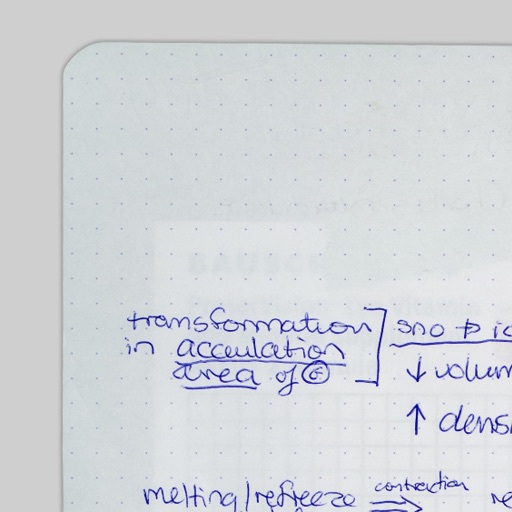 transformation
in accculation
area of G
sno → ic
↓ volum
↑ densi
melting/refreeze contraction → re